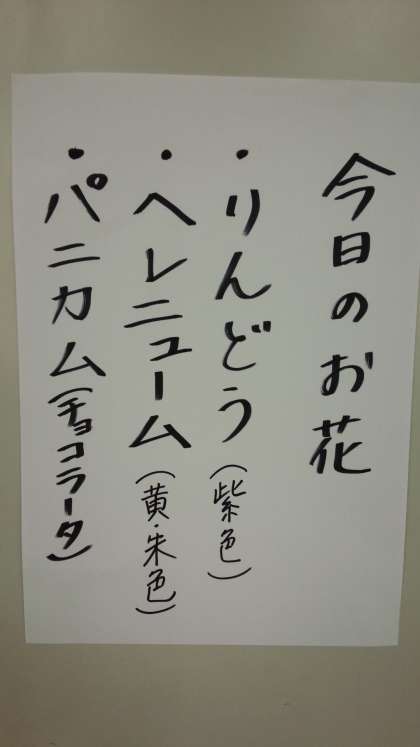 今日のお花
・りんどう(紫色)
・ヘレニューム(黄・朱色)
・パニカム(チョコラータ)